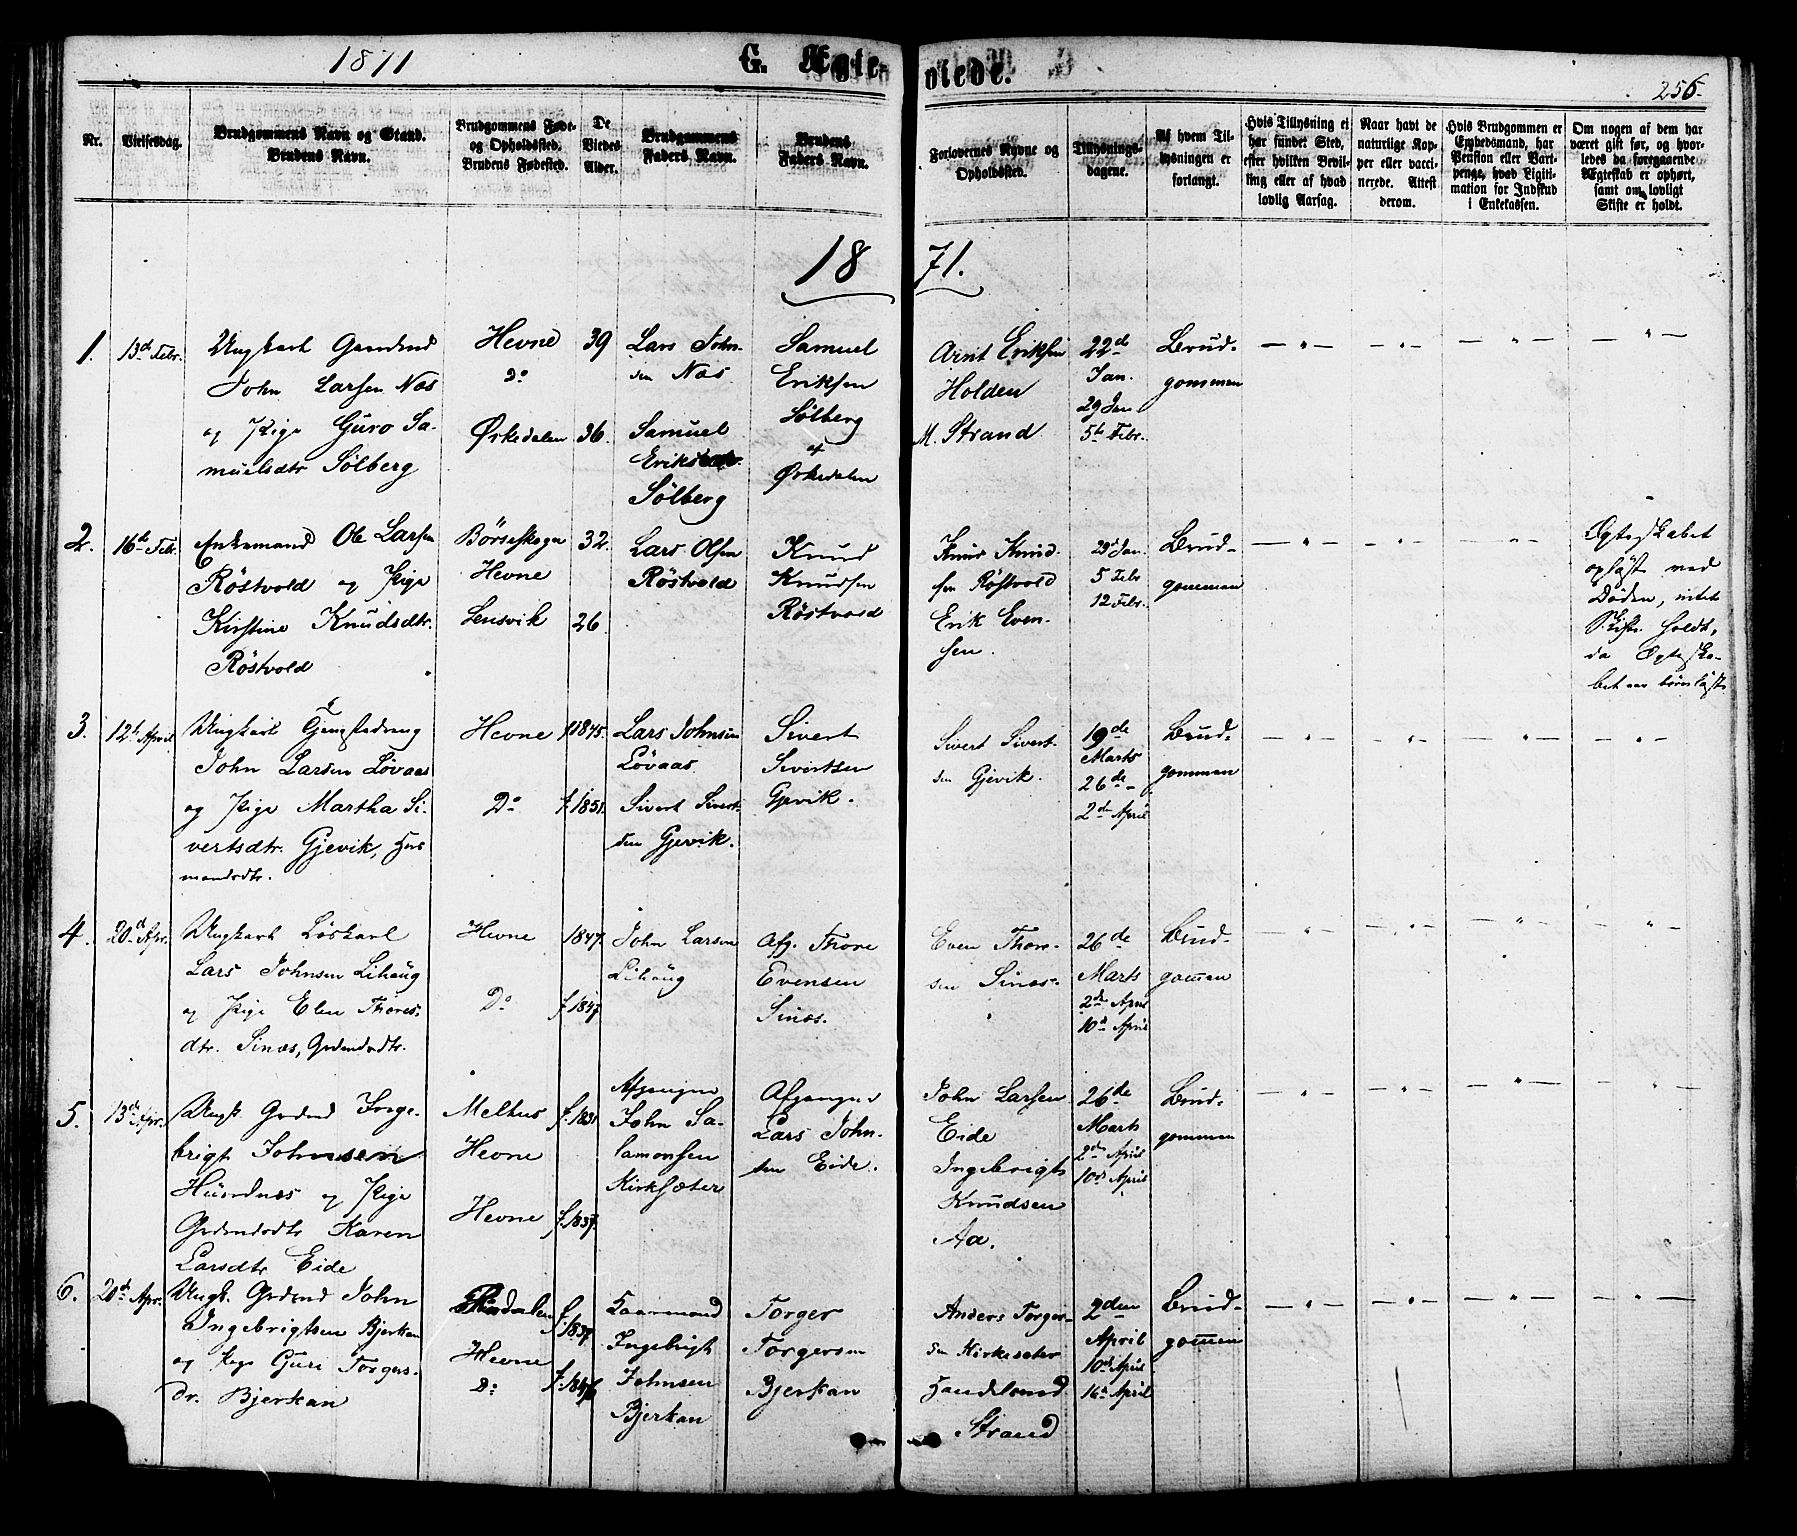 1871
G. Ægte-
viede.
256.
Nr.
Vielsesdag.
Brudgommens Navn og Stand.
Brudens Navn.
Brudgommens Føde-
og Opholdssted.
Brudens Fødested.
De
Viedes
Alder.
Brudgommens
Faders Navn.
Brudens
Faders Navn.
Forlovernes Navne og
Opholdssted.
Tillysnings-
dagene.
Af hvem Til-
lysningen er
forlangt.
Hvis Tillysning ei
har fundet Sted,
efter hvilken Bevil-
ling eller af hvad
lovlig Aarsag.
Naar havt de
naturlige Kop-
per eller vacci-
nerede. Attest
derom.
Hvis Brudgommen er
Embedsmand, har
Pension eller Vart-
penge, hvad Ligiti-
mation for Indskud
i Enkekassen.
Om nogen af dem har
været gift før, og hvor-
ledes da foregaaende
Ægteskab er ophørt,
samt om lovligt
Skifte er holdt.
18 71.
1.
13d Febr.
Ungkarl Gaardmd
John Larsen Næs
og Pige Guro Sa-
muelsdtr Sølberg
Hevne
Do
Ørkedalen
39
36.
Lars John-
sen Næs
Samuel
Eriksen
Sölberg
Samuel
Eriksen
Sölberg
af
Ørkedalen
Arnt Eriksen
Holden
M. Strand
22de
Jan.
29 Jan
5te Febr.
Brud-
gommen
— " —
— " —
— " —
— " —
2.
16de Febr.
Enkemand Ole Larsen
Röstvold og Pige
Kirstine Knudsdtr.
Röstvold
Börseskogn
Hevne
Lensvik
32.
26.
Lars Olsen
Röstvold
Knud
Knudsen
Röstvold
Knud Knud-
sen Röstvold
Erik Even-
sen.
29d Jan.
5 Febr
12 Febr.
Brud-
gommen
— " —
— " —
— " —
Ægteskabet
oplöst ved
Döden, intet
Skifte holdt,
da Ægteska-
bet var börnlöst
3.
12te April
Ungkarl Tjenestedreng
John Larsen Lövaas
og Pige Martha Si-
vertsdtr. Gjevik, Hus
mandsdtr.
Hevne
Do
f 1845.
f. 1851.
Lars Johnsen
Lövaas
Sivert Sivert-
sen Gjevik.
Sivert
Sivertsen
Gjevik.
Sivert Sivert-
sen Gjevik.
19de
Marts
26de -
2den April
Brud-
gommen
— " —
— " —
— " —
— " —
4.
20d Apr.
Ungkarl Löskarl
Lars Johnsen Lihaug
og Pige Elen Thores-
dtr. Sinæs, Grdmdsdtr.
Hevne
Do
1847.
f. 1847.
John Larsen
Lihaug
Afg. Thore
Evensen
Sinæs.
Even Thore-
sen Sinæs.
26de
Marts
2den April
10de April
Brud-
gommen
— " —
— " —
— " —
— " —
5.
13de Apr.
Ungk. Grdmd Inge-
brigt Johnsen
Husdnæs og Pige
Grdmdsdtr Karen
Larsdtr Eide
Melhus
Hevne
Hevne
f. 1831
f. 1837.
Afgangne
John Sa-
lamonsen
Kirksæter
Afgangne
Lars John-
sen Eide.
John Larsen
Eide
Ingebrigt
Knudsen
Aa.
26de
Marts
2den April
10de April
Brud-
gommen
— " —
— " —
— " —
— " —
6.
20d Apr.
Ungk. Grdmd John
Ingebrigtsen Bjerkan
og Pige Guri Torgers-
dr. Bjerkan
Hevne
Do
Kaarmand
Ingebrigt
Johnsen
Bjerkan
Torger
Torgersen
Bjerkan
Anders Torger-
sen Kirkesæter
Handelsmd.
Strand
2den
April
10de April
16de April
Brud-
gommen
— " —
— " —
— " —
— " —